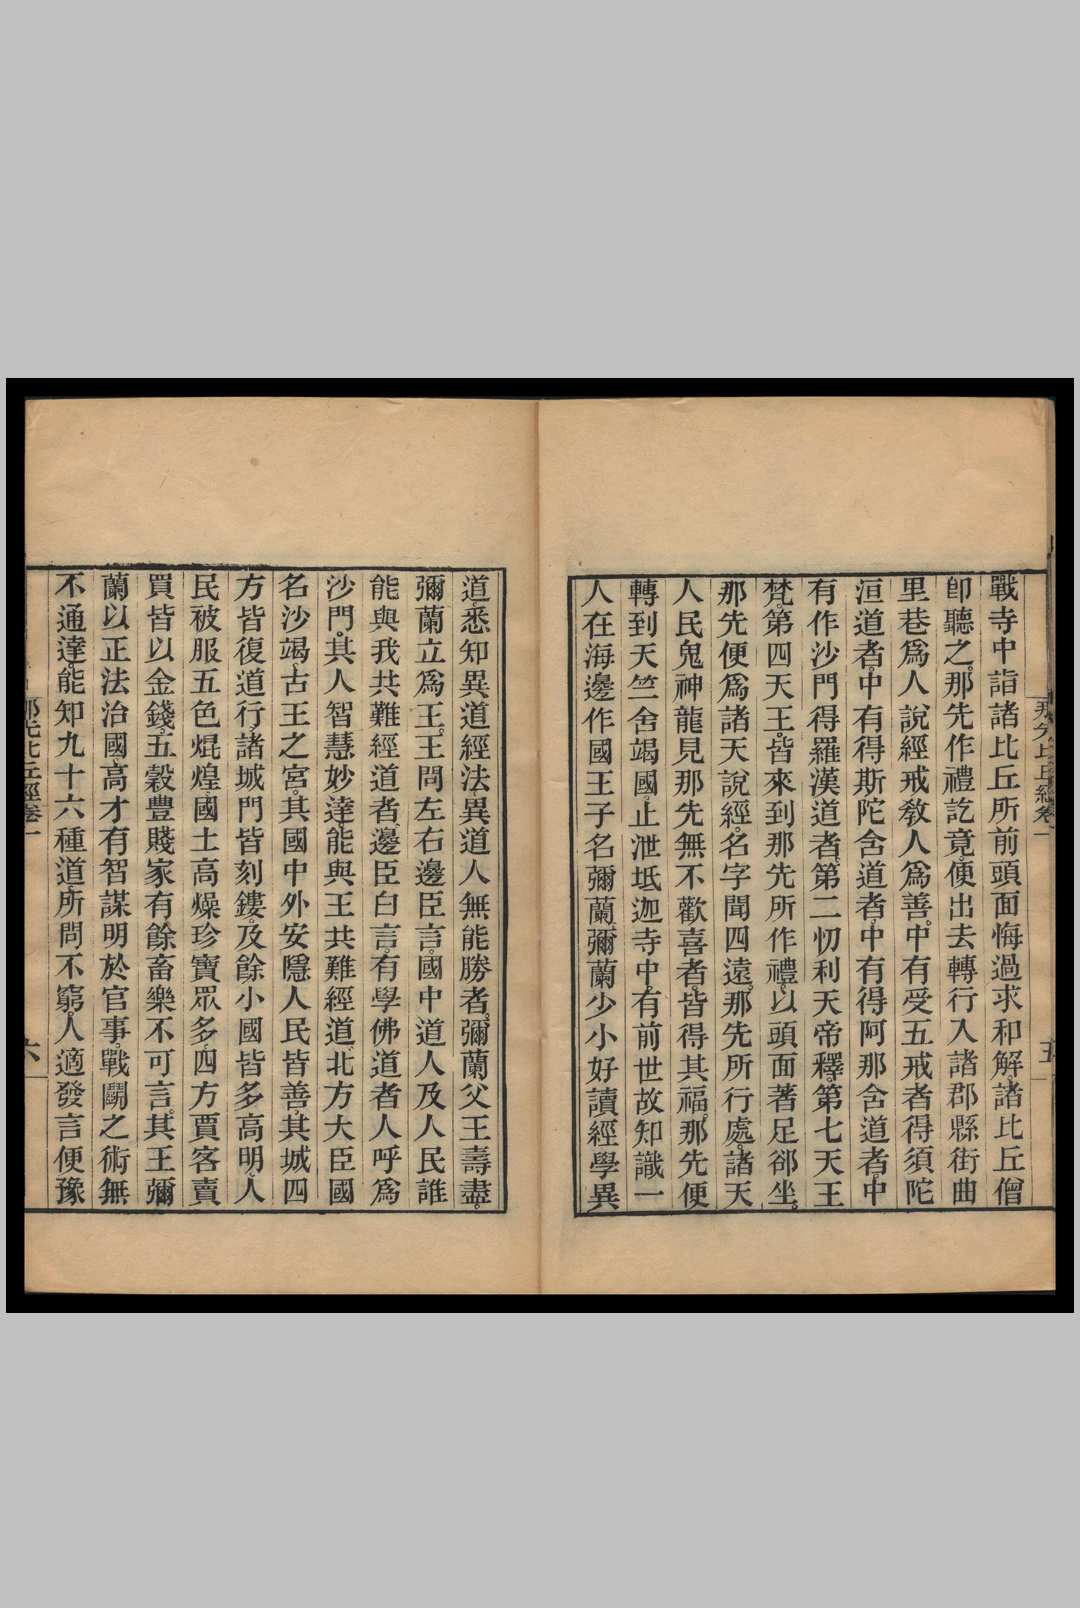 那先比丘經卷一
五
戰寺中詣諸比丘所前頭面悔過求和解諸比丘僧
卽聽之。那先作禮訖竟。便出去轉行入諸郡縣街曲
里巷爲人說經戒敎人爲善。中有受五戒者得須陀
洹道者。中有得斯陀含道者。中有得阿那含道者。中
有作沙門得羅漢道者。第二忉利天帝釋。第七天王
梵。第四天王。皆來到那先所作禮。以頭面著足郤坐。
那先便爲諸天說經。名字聞四遠。那先所行處。諸天
人民鬼神龍見那先無不歡喜者。皆得其福。那先便
轉到天竺舍竭國。止泄坻迦寺中。有前世故知識一
人在海邊作國王子名彌蘭。彌蘭少小好讀經學異
道。悉知異道經法。異道人無能勝者。彌蘭父王壽盡。
彌蘭立爲王。王問左右邊臣言。國中道人及人民誰
能與我共難經道者。邊臣白言。有學佛道者人呼爲
沙門。其人智慧妙達。能與王共難經道。北方大臣國
名沙竭。古王之宮。其國中外安隱人民皆善。其城四
方皆復道行。諸城門皆刻鏤。及餘小國皆多高明。人
民被服五色焜煌。國土高燥珍寶眾多。四方賈客賣
買皆以金錢。五穀豐賤家有餘畜樂不可言。其王彌
蘭以正法治國。高才有智謀明於官事。戰鬭之術無
不通達。能知九十六種道。所問不窮。人適發言便豫
那先比丘經卷一
六